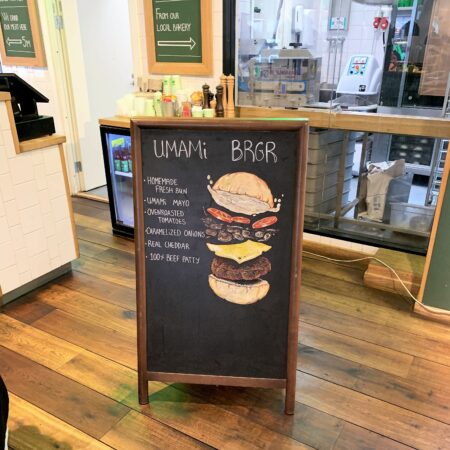 WE GRIND
OUR MEAT HERE
5M
FROM OUR
LOCAL BAKERY
UMAMi BRGR
· HOMEMADE
FRESH BUN
· UMAMI MAYO
· OVENROASTED
TOMATOES
· CARAMELIZED ONIONS
· REAL CHEDDAR
· 100% BEEF PATTY